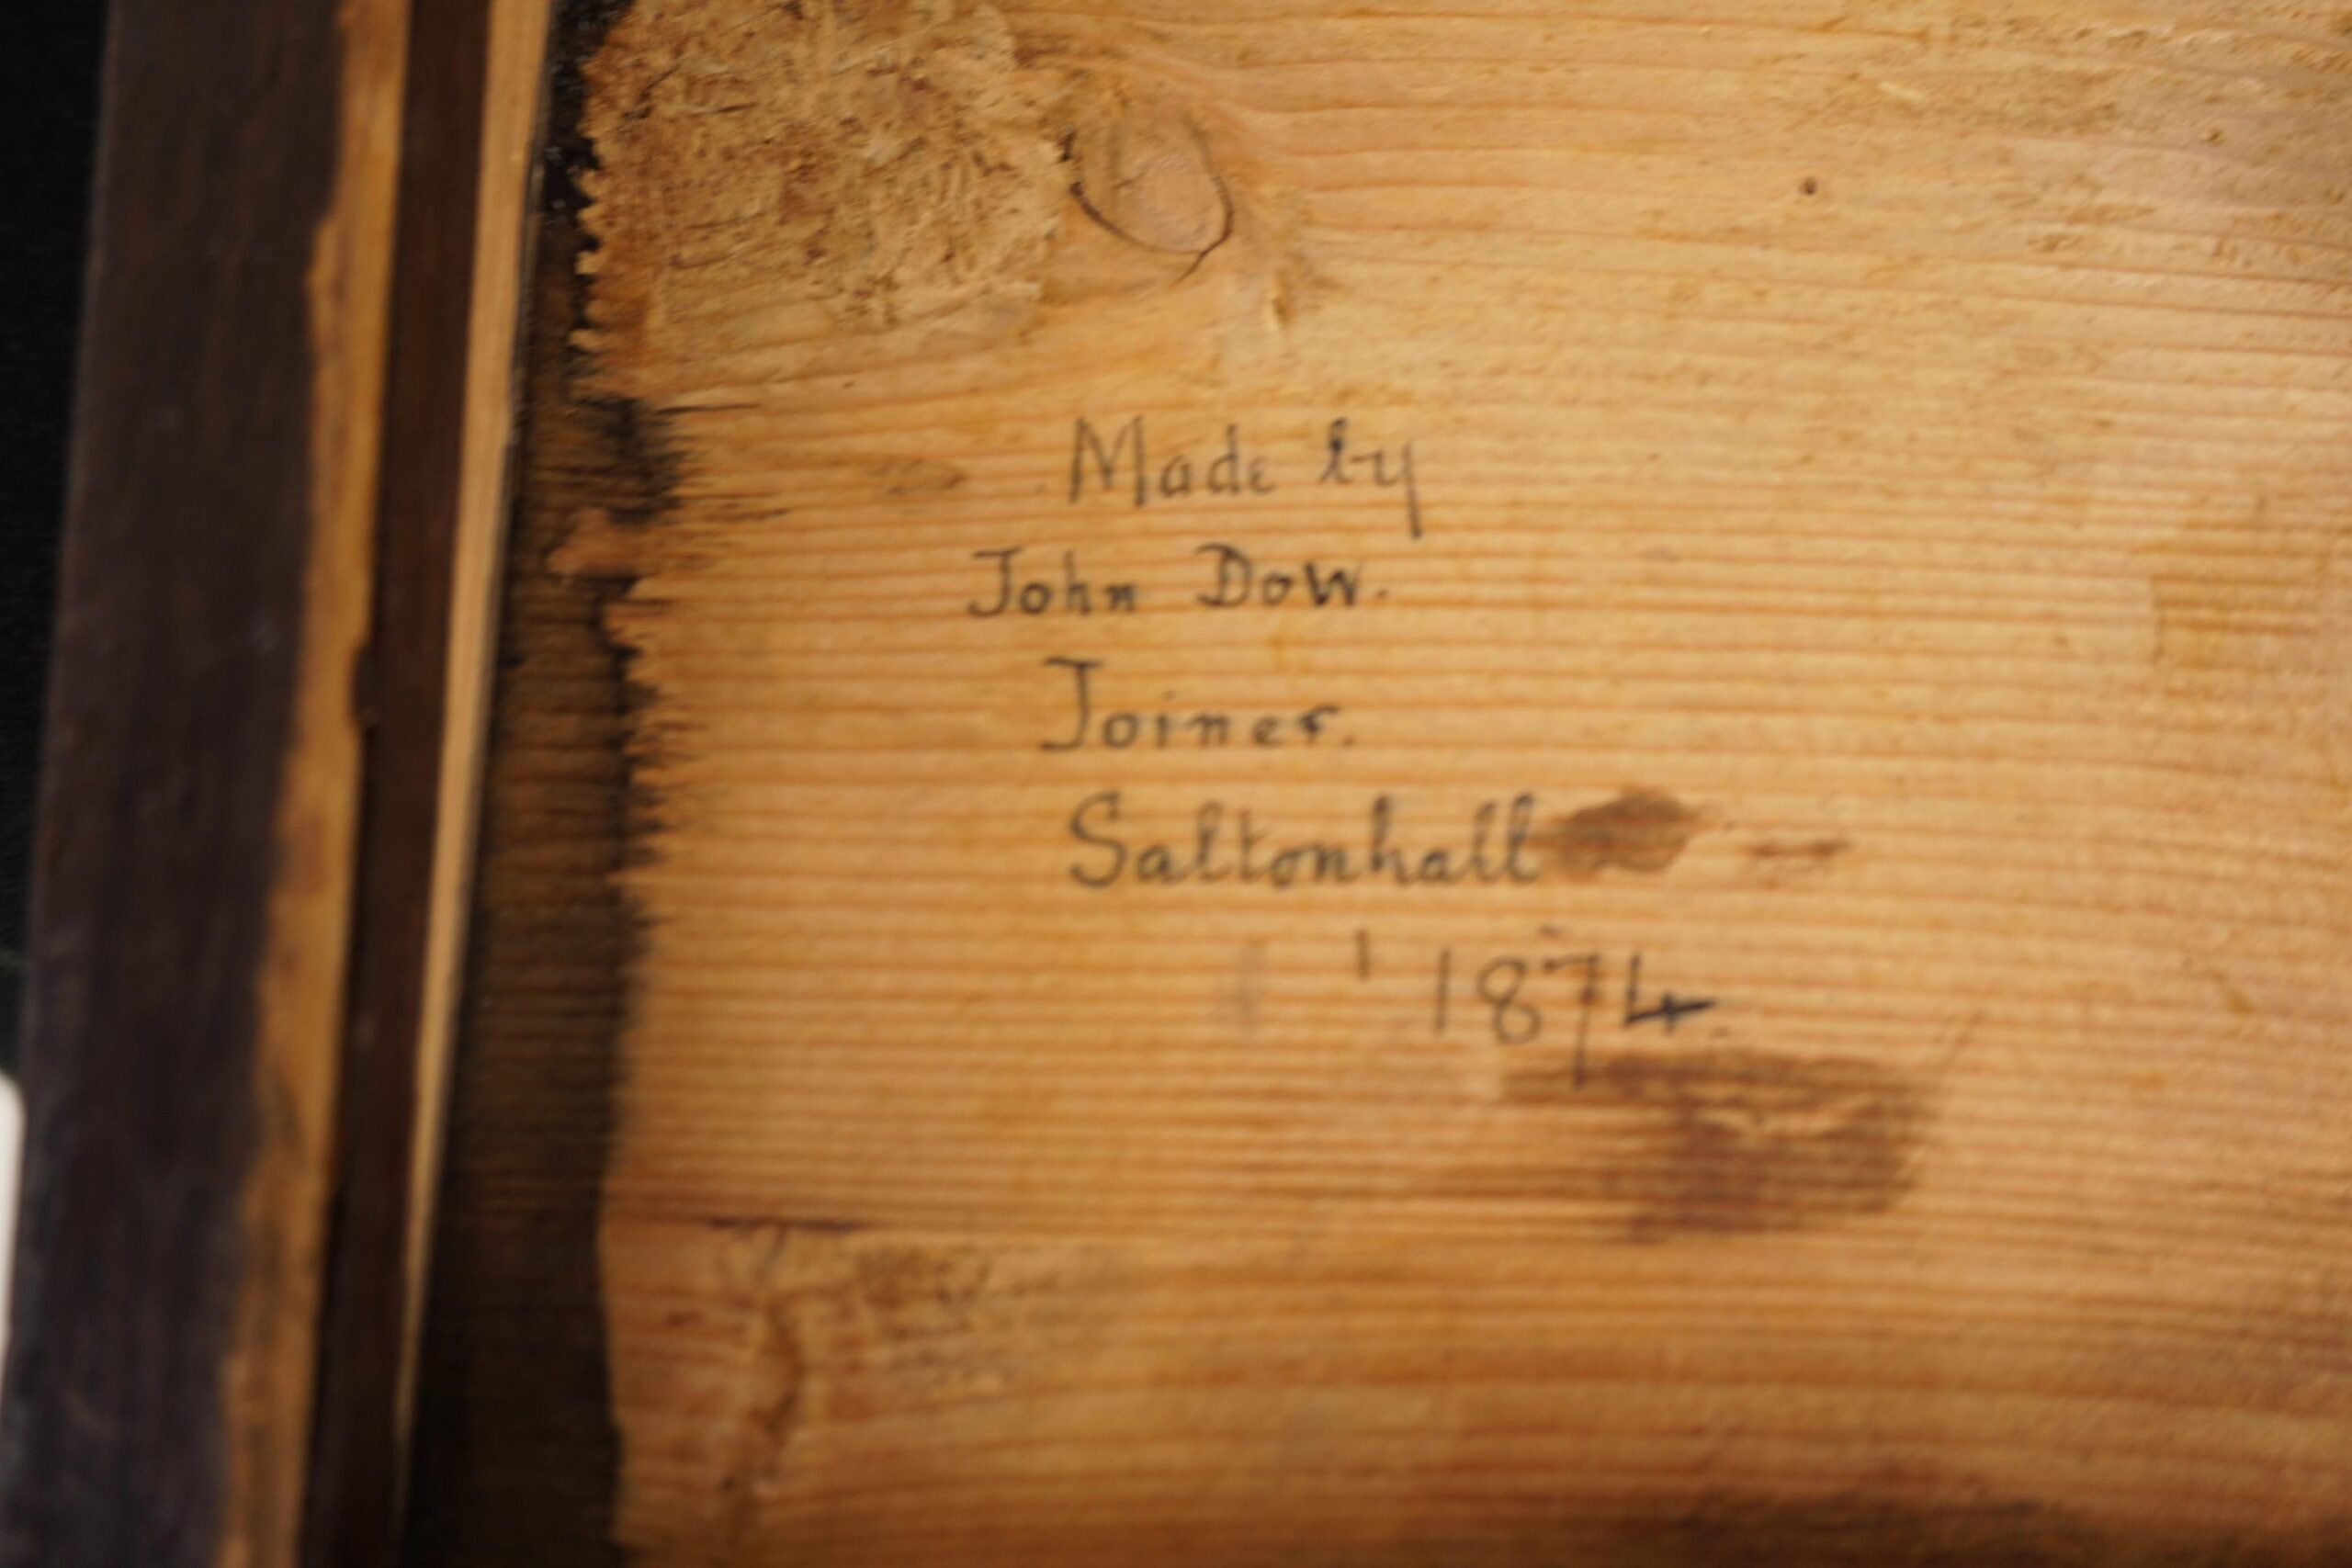 Made by
John Dow.
Joiner.
Saltonhall
1874.